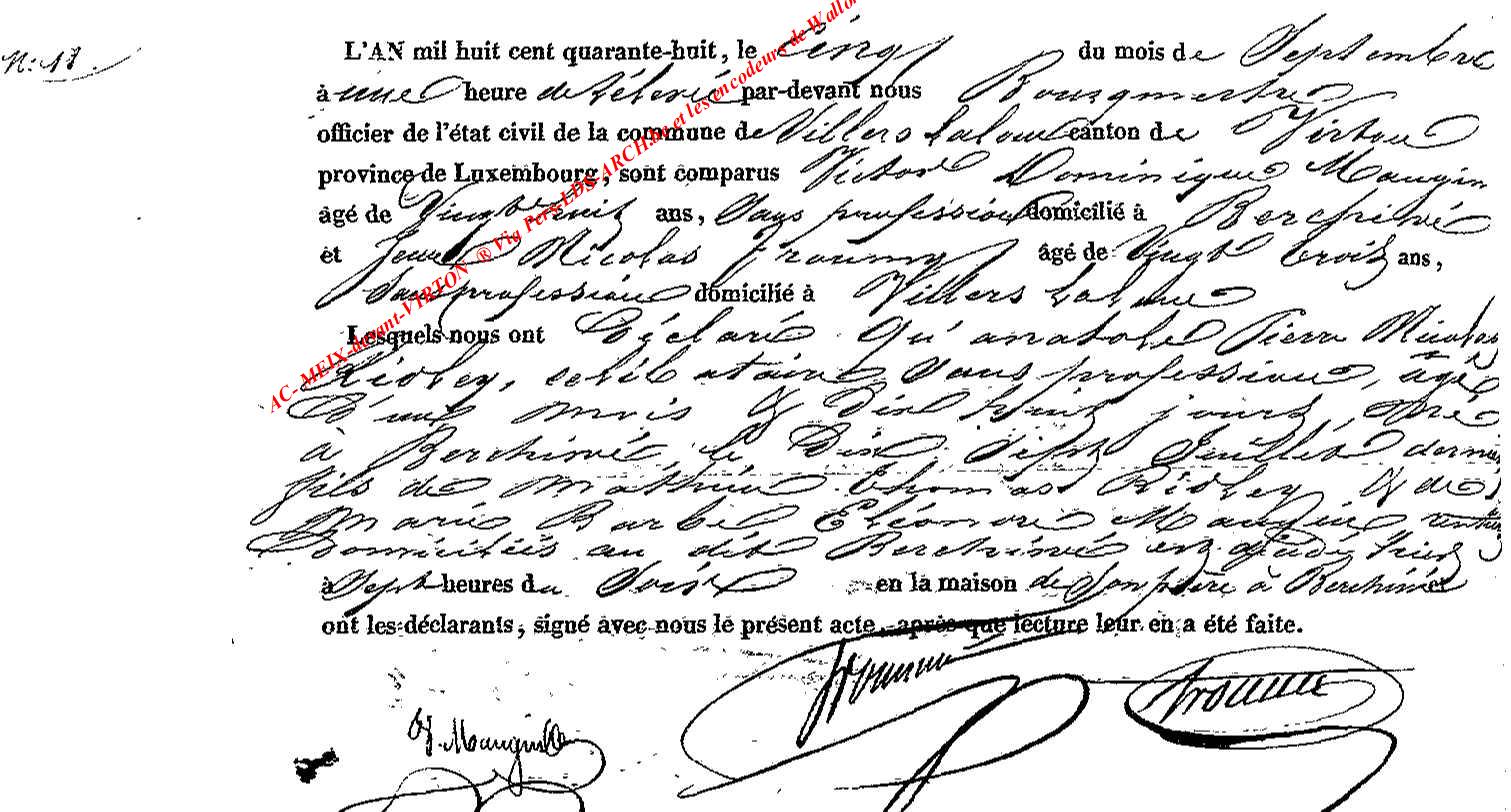 N.° 17.
L'AN mil huit cent quarante-huit, le Cinq du mois de Septembre
à une heure de rélevée par-devant nous Bourgmestre
officier de l'état civil de la commune de Villers Laloue canton de Virton
province de Luxembourg, sont comparus Victor Dominique Maugin
âgé de Vingt huit ans, Sans profession domicilié à Berchivé
et Jean Nicolas Froumy âgé de Vingt trois ans,
Sans profession domicilié à Villers Laloue
Lesquels nous ont Déclaré qu'anatole Pierre Nicolas
célibataire, Sans profession, âgé
D'un mois & Dix huit jours, né
à Berchivé, le Dix Sept Juillet dernier
fils de Mathieu Thomas & de
Marie Barbe Eléonore Maugin
Domiciliés au dit Berchivé est décédé hier
à Sept heures du Soir en la maison de Son père à Berchivé et
ont les déclarants, signé avec nous le présent acte, après que lecture leur en a été faite.
V. Maugin
AC-MEIX-devant-VIRTON ® Via Pers-LDS-ARCH.be et les encodeurs de Wallon